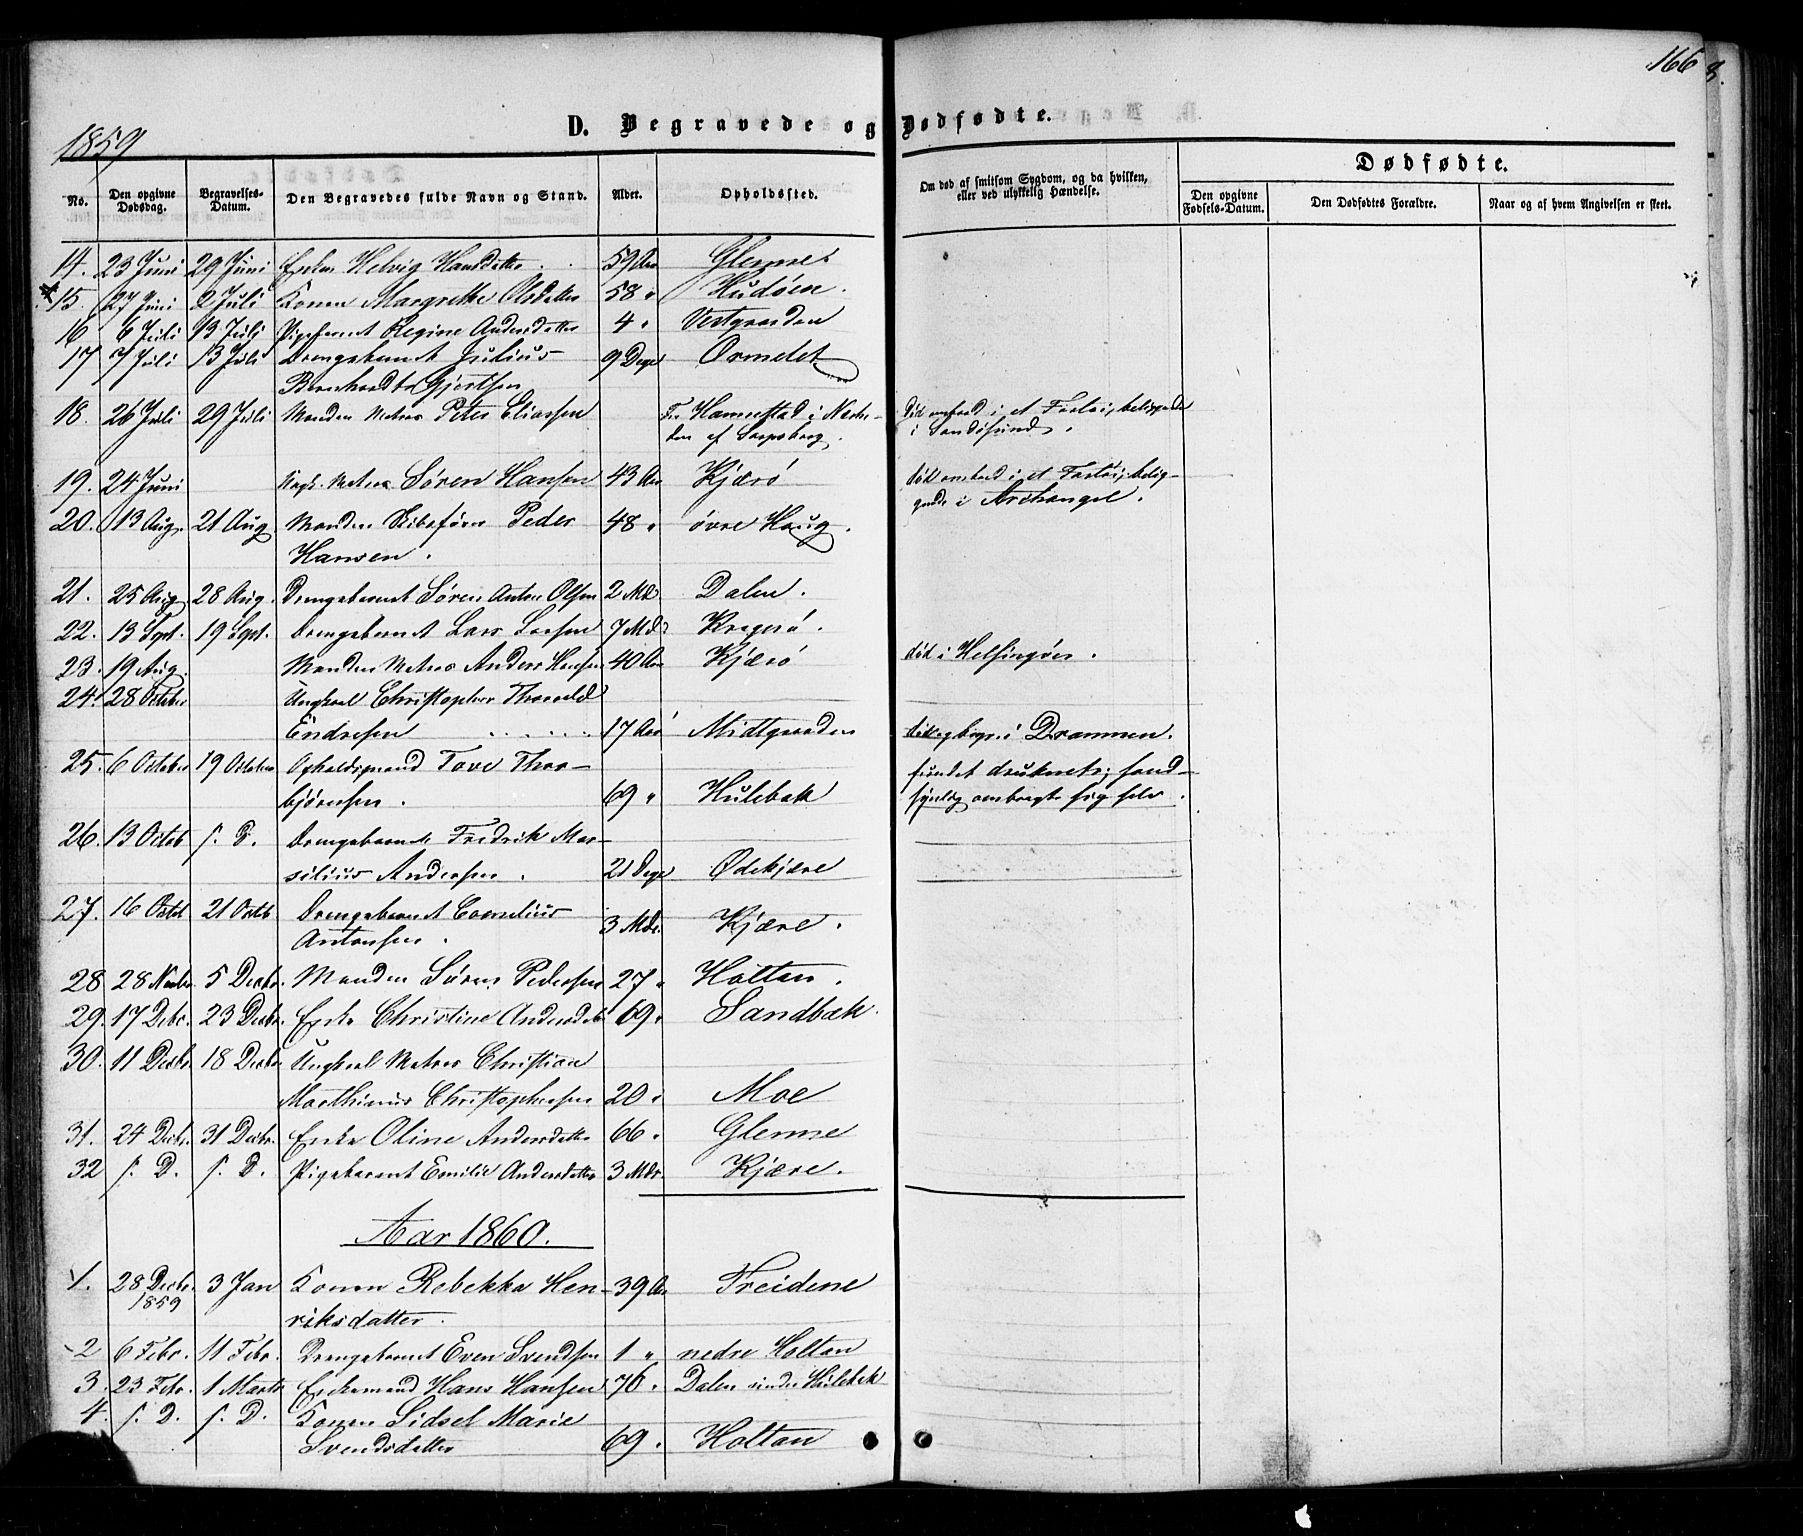 166
1859
D. Begravede og Dødfødte.
No. Den opgivne Dødsdag. Begravelses-Datum. Den Begravedes fulde Navn og Stand. Alder. Opholdssted. Om død af smitsom Sygdom, og da hvilken, eller ved ulykkelig Hændelse.
Dødfødte.
Den opgivne Fødsels-Datum. Den Dødfødtes Forældre. Naar og af hvem Angivelsen er skeet.
14. 23 Juni 29 Juni Enken Helvig Hansdatter 59 Aar Glenne
15. 27 Juni 2 Juli Konen Margrethe Olsdatter 58 " Hudøen.
16 6 Juli 13 Juli Pigebarnet Regine Andersdatter 4 " Vestgaarden
17 7 Juli 13 Juli Drengebarnet Julius 9 Dage Ormelet
Bernhardt Gjertsen
18. 26 Juli 29 Juli Manden Matros Peter Eliassen Fr. Hannestad i Nærhe- død ombord i et Fartøi, beliggende
den af Sarpsborg. i Sandøsund.
19. 24 Juni Ungk. Matros Søren Hansen 43 Aar Kjærø død ombord i et Fartøi, belig-
gende i Archangel.
20. 13 Aug. 21 Aug Manden Skibsfører Peder 48 " øvre Haug.
Hansen.
21. 25 Aug 28 Aug. Drengebarnet Søren Anton Olsen 2 Md Dalen.
22. 13 Sept. 19 Sept. Drengebarnet Lars Larsen 7 Md. Kragerø.
23. 19 Aug. Manden Matros Anders Hansen 40 Aar Kjærø død i Helsingør.
24. 28 October Ungkarl Christopher Thorvald
Endresen 17 Aar Midtgaarden død og begr. i Drammen.
25. 6 October 19 October Opholdsmand Tove Thor- fundet druknet; sand-
bjørnsen. 69 " Hulebak synlig ombragt sig selv.
26. 13 Octob s. D. Drengebarnet Fredrik Mar-
silius Andersen. 21 Dage Ødekjære
27. 16 Octb 21 Octb Drengebarnet Cornelius
Antonsen. 3 Mdr. Kjære.
28 28 Novbr. 5 Decbr. Manden Søren Pedersen 27 " Holtan.
29. 17 Debr. 23 Decbr. Enke Christine Andersdatter 69 " Sandbæk.
30. 11 Decbr. 18 Decbr Ungkarl Matros Christian
Marthinus Christophersen 20 " Moe
31. 24 Decbr. 31 Decbr. Enke Oline Andersdatter 66 " Glenne
32 s. D. s. D. Pigebarnet Emilie Andersdatter 3 Mdr. Kjære.
Aar 1860.
1. 28 Decbr. 3 Jan Konen Rebekka Hen- 39 Aar Freidene
1859 riksdatter.
2 6 Febr. 11 Febr. Drengebarnet Even Svendsen 1 " nedre Holtan
3. 23 Febr. 1 Marts Enkemand Hans Hansen 76 " Dalen under Hulebak
4. s. D. s. D. Konen Sidsel Marie
Svendsdatter 69. Holtan